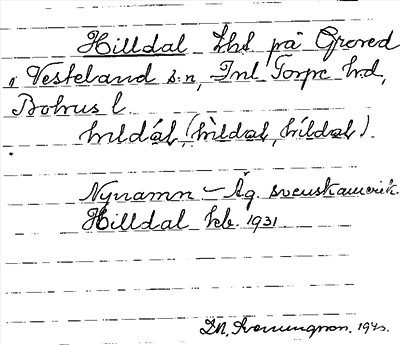 Hilldal lht på Grored
i Vesteland s:n, Inl Torpe hd,
Bohus l.
hildal, (hildal, hildal).
Nynamn – Äg. svenskamerik.
Hilldal keb. 1931
1940.